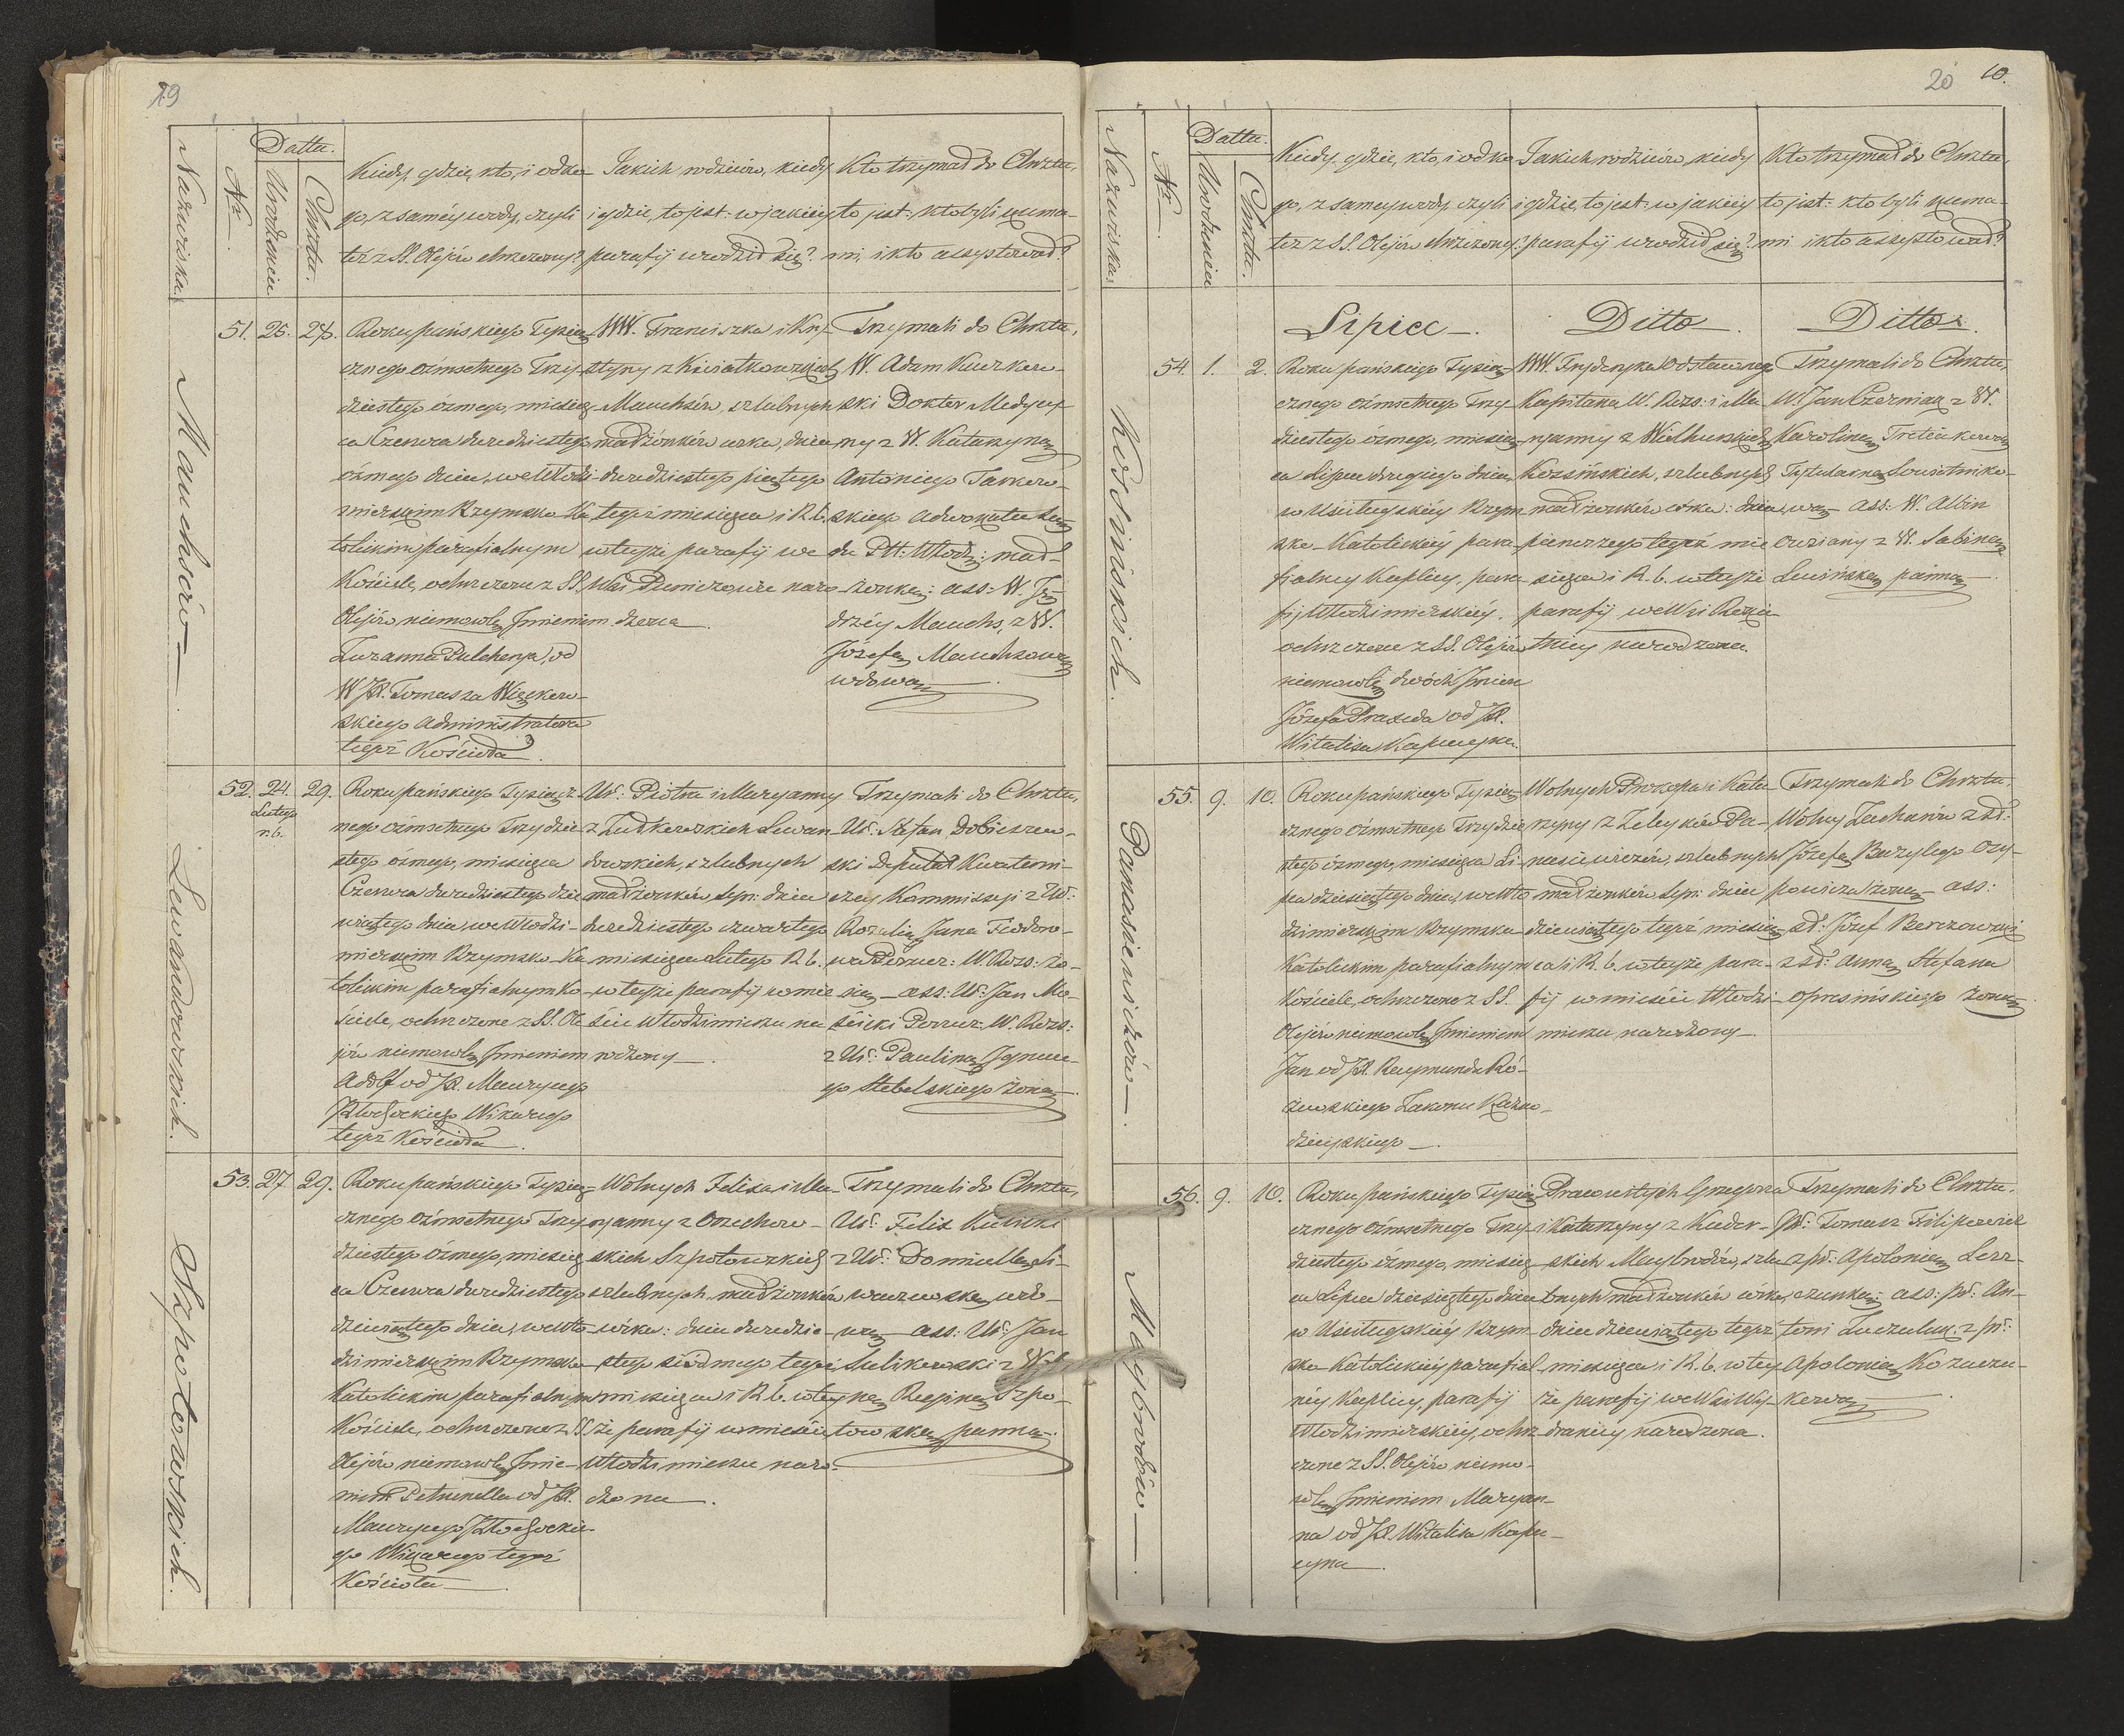 19
Nazwiska.
Nr.
Datta.
Urodzenia
Chrztu.
Kiedy, gdzie, kto, i od ko-
go, z saméy wody, czyli
téż z SS. Olejów chrzczony?
Jakich rodziców, kiedy
i gdzie, to jest: w jakiéy
parafij urodził się?
Kto trzymał do Chrztu,
to jest: kto byli kuma-
mi, i kto assystował?
Mauchsów
51. 25. 28.
Roku pańskiego Tysią-
cznego ośmsetnego Trzy-
dziestego ósmego, miesią-
ca Czerwca dwudziestego
ósmego dnia, we Włodzi-
mierskim Rzymsko Ka-
tolickim parafialnym
Kościele, ochrzczone z SS.
Olejów niemowlę Imieniem
Zuzanna Pulcherya, od
W JX. Tomasza Więckow-
skiego Administratora
tegoż Kościoła.
WW. Franciszka i Kry-
styny z Kwiatkowskich
Mauchsów, ślubnych
małżonków córka, dnia
dwudziestego piątego
tegoż miesiąca i R. b.
w teyże parafij we
Wsi naro-
dzona.
Trzymali do Chrztu,
W. Adam
ski Doktor Medycy-
ny z W. Katarzyną
Antoniego
skiego Adwokata
du Ptt: Włodz: mał-
żonką; ass: W. Ję-
drzéy Mauchs, z W.
Józefą Mauchsową
wdową.
Lewandowskich.
52. 24. 29.
Lutego
r. b.
Roku pańskiego Tysiącz-
nego ośmsetnego Trzydzie-
stego ósmego, miesiąca
Czerwca dwudziestego dzie-
wiątego dnia, we Włodzi-
mierskim Rzymsko-Ka-
tolickim parafialnym Ko-
ściele, ochrzczone z SS. Ole-
jów niemowlę Imieniem
Adolf od JX. Maurycego
Wikarego
tegoż Kościoła.
Ur: Piotra i Maryanny
z Lewan-
dowskich, ślubnych
małżonków syn: dnia
dwudziestego czwartego
miesiąca Lutego R. b.
w teyże parafij w mie-
ście Włodzimierzu na-
rodzony.
Trzymali do Chrztu,
Ur: Stefan
ski Deputat Kwateni-
czey Kommissyi z Ur:
Rozalią Jana Fiodoro-
wa Porucz: W. Ross: żo-
ną ass: Ur: Jan Mo-
ścicki Porucz: W. Ross:
z Ur: Pauliną Ignace-
go Stebelskiego żoną.
Szpotowskich.
53. 27. 29.
Roku pańskiego Tysią-
cznego ośmsetnego Trzy-
dziestego Ósmego, miesią-
ca Czerwca dwudziestego
dziewiątego dnia, we Wło-
dzimierskim Rzymsko
Katolickim parafialnym
Kościele, ochrzczone z SS
Olejów niemowlę Imie-
niem Petronella od JX.
Maurycego
go Wikarego tegoż
Kościoła.
Wolnych Felixa i Ma-
ryanny z Orzechow-
skich Szpotowskich
ślubnych małżonków
córka: dnia dwudzie-
stego siódmego tegoż
miesiąca i R. b. w tey-
że parafij w mieście
Włodzimierzu naro-
dzona.
Trzymali do Chrztu,
Ur: Felix
z Ur: Domicellą
wdo-
wą ass: Ur: Jan
Sulikowski z Wol-
ną Reginą Szpo-
towską panną.
20 10.
Nazwiska.
Nr.
Datta.
Urodzenia
Chrztu.
Kiedy, gdzie, kto, i od ko-
go, z samey wody, czyli
też z SS. Olejów chrzczony?
Jakich rodziców, kiedy
i gdzie, to jest: w jakiéy
parafij urodził się?
Kto trzymał do Chrztu,
to jest: kto byli kuma-
mi i kto assystował?
Lipiec.
Ditto.
Ditto.
Kossińskich.
54. 1. 2.
Roku pańskiego Tysią-
cznego ośmsetnego Trzy-
dziestego ósmego, miesią-
ca Lipca drugiego dnia,
w Uściługskiéy Rzym-
sko-Katolickiéy para-
fialney Kaplicy, para-
fij Włodzimierskiey,
ochrzczone z SS. Olejów
niemowlę dwóch Imion
Józefa Praxeda od JX.
Witalisa Kapucyna.
WW. Fryderyka Odstawnego
Kapitana W. Ross: i Ma-
ryanny z Wielhurskich
Kossińskich, ślubnych
małżonków córka: dnia
pierwszego tegoż mie-
siąca i R. b. w teyże
parafij we Wsi
narodzona.
Trzymali do Chrztu,
W. Jan Czerniak z W.
Karoliną Tretiakową
Tytularną Sowietniko-
wą ass: W. Albin
z W. Sabiną
panną.
Panasiewiczów
55. 9. 10.
Roku pańskiego Tysią-
cznego ośmsetnego Trzydzie-
stego ósmego, miesiąca Li-
pca dziesiątego dnia, we Wło-
dzimierskim Rzymsko-
Katolickim parafialnym
Kościele, ochrzczone z SS.
Olejów niemowlę Imieniem
Jan od JX. Raymunda Ró-
żewskiego Zakonu Kazno-
dzieyskiego.
Wolnych Prokopa i Kata-
rzyny z Pa-
nasiewiczów, ślubnych
małżonków Syn: dnia
dziewiątego tegoż miesią-
ca i R. b. w teyże para-
fij w mieście Włodzi-
mierzu narodzony.
Trzymali do Chrztu,
Wolny
Józefą Bazylego
żoną ass:
Sł: Józef
z Sł: Anną Stefana
żoną.
Maybrodów
56. 9. 10.
Roku pańskiego Tysią-
cznego ośmsetnego Trzy-
dziestego ósmego, miesią-
ca Lipca dziesiątego dnia
w Uściługskiéy Rzym-
sko Katolickiéy parafial-
néy Kaplicy, parafij
Włodzimierskiéy, ochrz-
czone z SS. Olejów niemo-
wlę Imieniem Maryan-
na od JX. Witalisa Kapu-
cyna.
Pracowitych Grzegorza
i Katarzyny z
skich Maybrodów, ślu-
bnych małżonków córka,
dnia dziewiątego tegoż
miesiąca i R. b. w tey-
że parafij we Wsi Wy-
narodzona.
Trzymali do Chrztu,
Pr: Tomasz Filipowicz
z pr: Apolonią
ass: pr: An-
toni z pr:
Apolonią
kową.